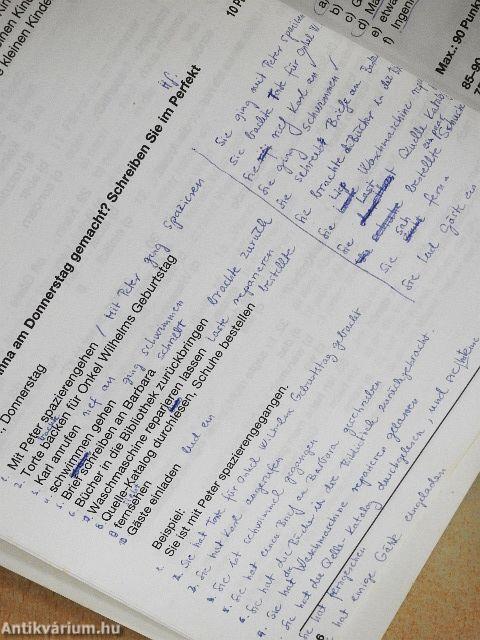 kleinen Kinder
10 P
Max.: 90 Punk
85–90
f) Ingen
nna am Donnerstag gemacht? Schreiben Sie im Perfekt
Donnerstag
Mit Peter spazierengehen / Mit Peter ging spazieren
Torte backen für Onkel Wilhelms Geburtstag
Karl anrufen rief an
schwimmen gehen ging schwimmen
Brief schreiben an Barbara schreibt
Bücher in die Bibliothek zurückbringen brachte zurück
Waschmaschine reparieren lassen
Quelle-Katalog durchlesen, Schuhe bestellen bestellte
fernsehen
Gäste einladen lud ein
Sie ging mit Peter spazieren
Sie backte Torte für Onkel W
rief Karl an /
Sie ging schwimmen /
Sie schreibt Briefe an Bar
Sie brachte Bücher in die
Sie Waschmaschine
Sie Quelle Katal
bestellte Schuh
Sie sah fern
Sie lud Gäste ein
Beispiel:
Sie ist mit Peter spazierengegangen.
Sie hat Torte für Onkel Wilhelm Geburtstag gebackt
Sie hat Karl angerufen
Sie ist schwimmen gegangen
Sie hat einen Brief an Barbara geschrieben
Sie hat die Bücher in die Bibliothek zurückgebracht.
Sie hat Waschmaschine reparieren gelassen
Sie hat die Quelle-Katalog durchgelesen, und
Sie hat ferngesehen
hat einige Gäste eingeladen
6
Antikvárium.hu